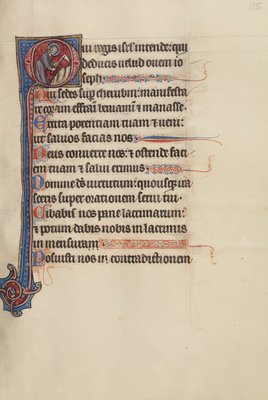 115
Qui regis isrl intende: qui
deducis uelud ouem io
seph.
Qui sedes sup cherubim: manifesta
re coram effraim beniamin et manasse.
Excita potentiam tuam et ueni:
ut saluos facias nos.
Deus conuerte nos: et ostende faci
em tuam et salui erimus.
Domine ds uirtutum: quousque ira
sceris super orationem serui tui.
Cibabis nos pane lacrimarum:
et potum dabis nobis in lacrimis
in mensuram.
Posuisti nos in contradictionem